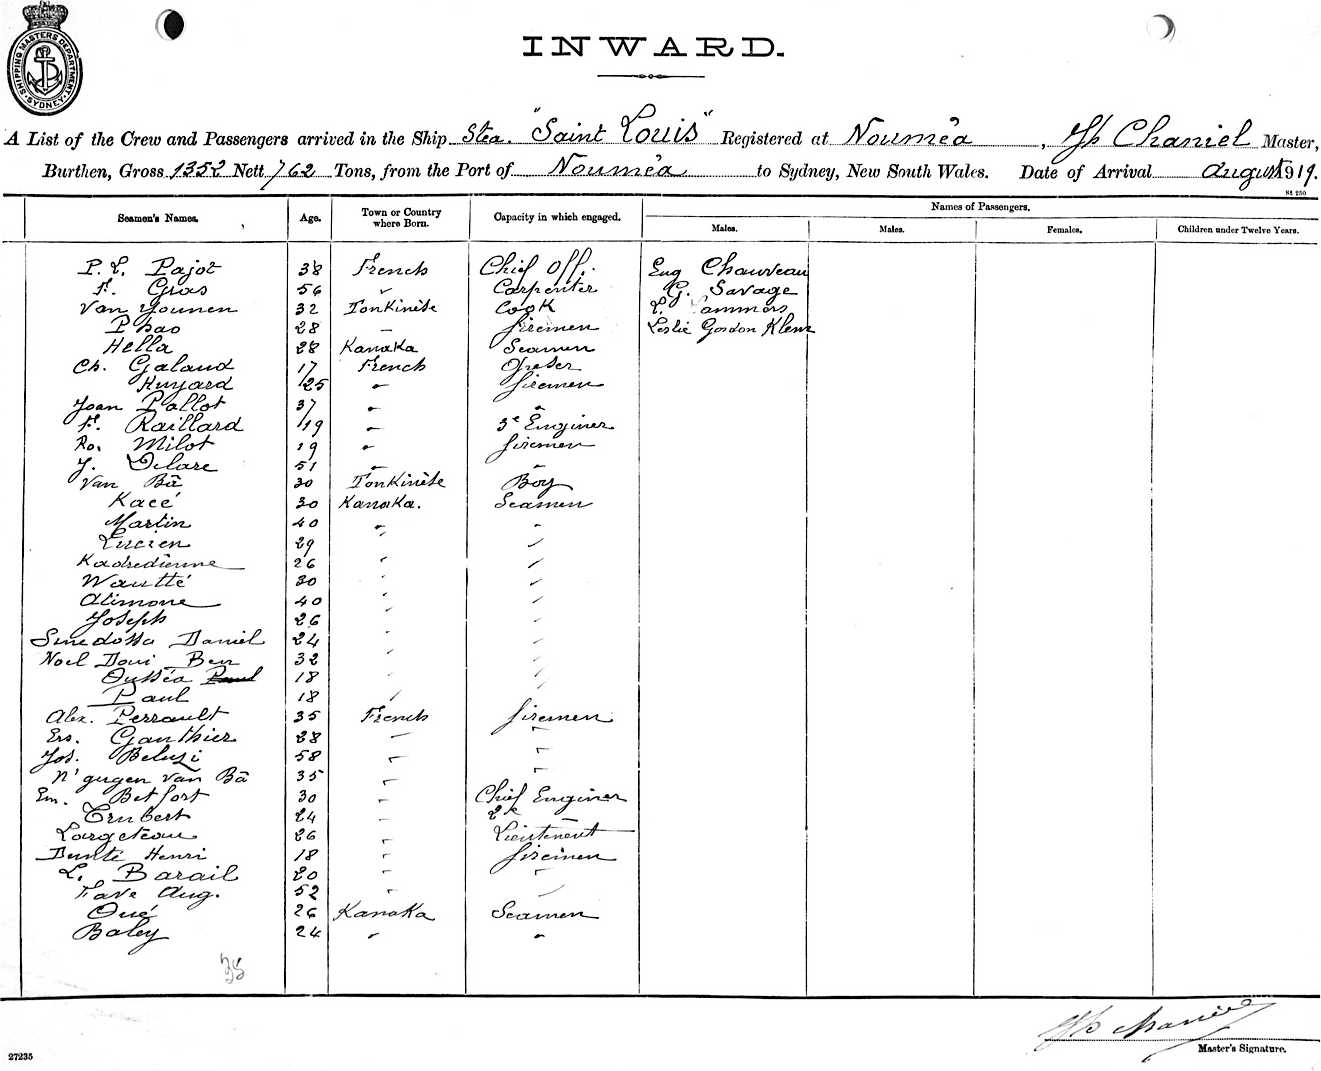 SHIPPING MASTERS DEPARTMENT
SYDNEY
INWARD.
A List of the Crew and Passengers arrived in the Ship Stea. "Saint Louis" Registered at Nouméa, Chaniel Master,
Burthen, Gross 1352 Nett 762 Tons, from the Port of Nouméa to Sydney, New South Wales. Date of Arrival August 1919.
St 250
Seamen's Names. Age. Town or Country where Born. Capacity in which engaged. Names of Passengers.
Males. Males. Females. Children under Twelve Years.
P. L. Pajot 38 French Chief Off. Eug Chauveau
F. Gras 56 " Carpenter G. Savage
Van Younen 32 Tonkinése Cook L. Sammors
Phao 28 " firemen Leslie Gordon Klem
Hella 28 Kanaka Seamen
Ch. Galaud 17 French Greser
Huyard 25 " firemen
Joan Pallot 37 " "
F. Raillard 19 " 3e Enginer
Ro. Milot 19 " firemen
J. Delare 51 " "
Van Bā 30 Tonkinése Boy
Kacé 30 Kanaka. Seamen
Martin 40 " "
Lucien 29 " "
Kadredienne 26 " "
Wautté 30 " "
Atimone 40 " "
Joseph 26 " "
Daniel 24 " "
Noel Doui Ben 32 " "
18 " "
Paul 18 " "
Alex. Perrault 35 French firemen
Ers. Gauthier 28 " "
Jos. Beluzi 58 " "
N'gugen Van Bā 35 " "
Em. Betfort 30 " Chief Enginer
24 " 2e "
Largeteau 26 " Lieutenent
Dunté Henri 18 " firemen
L. Barail 20 " "
Fave Aug. 52 " "
Oué 26 Kanaka Seamen
Baley 24 " "
35
Master's Signature.
27235